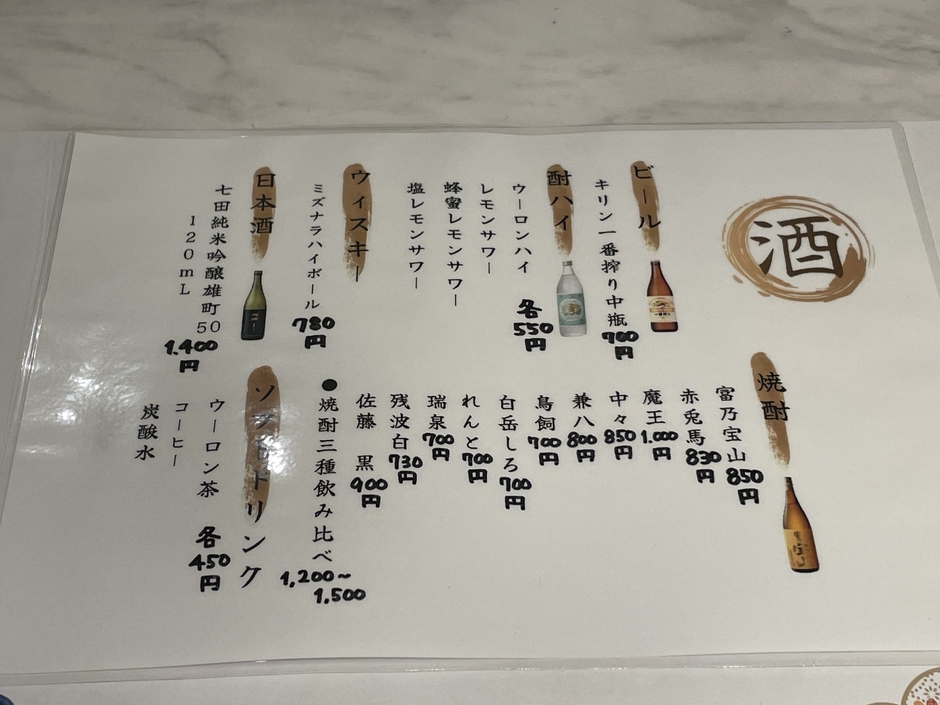 酒
ビール
キリン一番搾り中瓶 700円
酎ハイ
ウーロンハイ 各550円
レモンサワー
蜂蜜レモンサワー
塩レモンサワー
ウィスキー
ミズナラハイボール 780円
日本酒
七田純米吟醸雄町50
120mL 50 1.400円
焼酎
富乃宝山 850円
赤兎馬 830円
魔王 1.000円
中々 850円
兼八 800円
鳥飼 700円
白岳しろ 700円
れんと 700円
瑞泉 700円
残波白 730円
佐藤 黒 900円
●焼酎三種飲み比べ 1,200〜1,500
ソフトドリンク
ウーロン茶 各450円
コーヒー
炭酸水